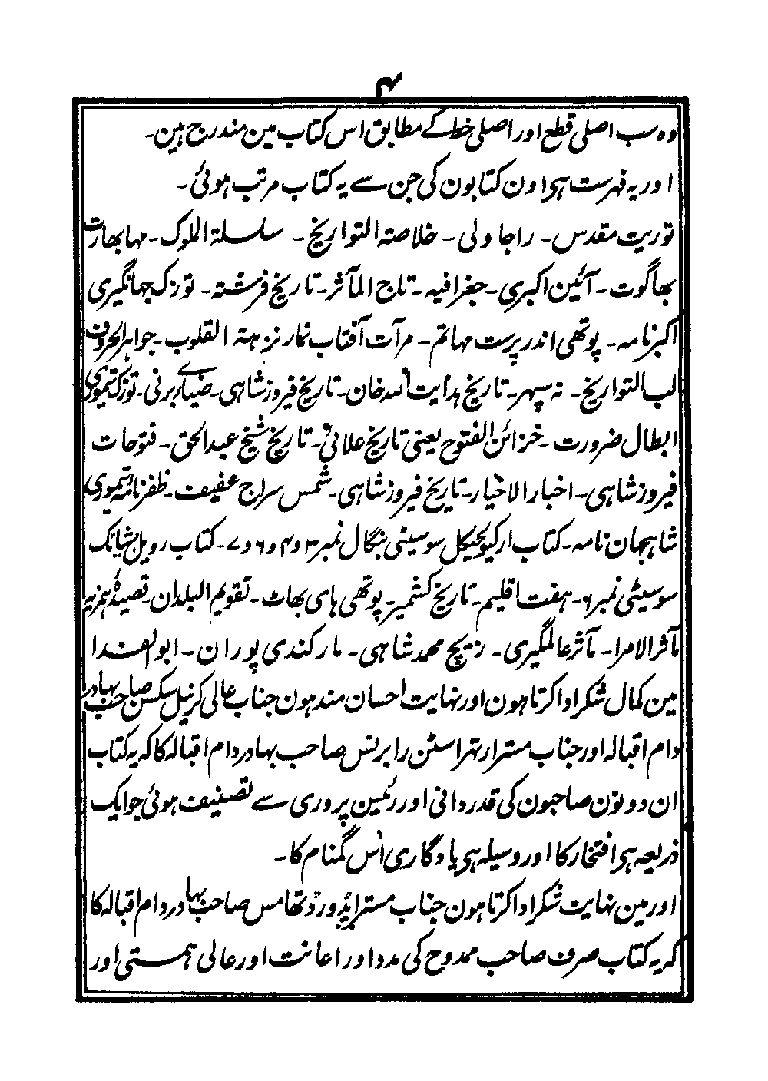 ۴
وہ سب اصلی قطع اور اصلی خط کے مطابق اس کتاب مین مندرج ہین۔
اور یہ فہرست ہی اون کتابون کی جن سے یہ کتاب مرتب ہوئی۔
توریت مقدس۔ راجا ولی۔ خلاصۃ التواریخ۔ سلسلۃ الملوک۔ مہابھارت
بھاگوت۔ آئین اکبری۔ جغرافیہ۔ تاج المآثر۔ تاریخ فرشتہ۔ توزک جہانگیری
اکبرنامہ۔ پوتھی اندرپرست مہاتم۔ مرآت آفتاب نما۔ نزہتہ القلوب۔ جواہر الحروف
لب التواریخ۔ نہ سپہر۔ تاریخ ہدایت اللہ خان۔ تاریخ فیروزشاہی۔ ضیاے برنی۔ توزک تیموری
ابطال ضرورت۔ خزائن الفتوح یعنی تاریخ علائی۔ تاریخ شیخ عبدالحق۔ فتوحات
فیروزشاہی۔ اخبار الاخیار۔ تاریخ فیروزشاہی۔ شمس سراج عفیف۔ ظفرنامہ تیموری
شاہجہان نامہ۔ کتاب ارکیولجیکل سوسیٹی بنگال نمبر ۳ و ۴ و ۶ و ۷۔ کتاب رویل ایشیاٹک
سوسیٹی نمبر ۶۔ ہفت اقلیم۔ تاریخ کشمیر۔ پوتھی ہای بھاٹ۔ تقویم البلدان۔ قصیدۂ ہمزیہ
مآثر الامرا۔ مآثر عالمگیری۔ زیچ محمد شاہی۔ مارکندی پوران۔ ابوالفدا
مین کمال شکر ادا کرتا ہون اور نہایت احسان مند ہون جناب عالی کرنیل سکسن صاحب بہادر
دام اقبالہ اور جناب مسٹر ارتھر اسٹن رابرٹس صاحب بہادر دام اقبالہ کا کہ یہ کتاب
ان دونون صاحبون کی قدردانی اور رئیس پروری سے تصنیف ہوئی جو ایک
ذریعہ ہی افتخار کا اور وسیلہ ہی یادگاری اس گمنام کا۔
اور مین نہایت شکر ادا کرتا ہون جناب مسٹر ایڈورڈ تھامس صاحب بہادر دام اقبالہ کا
کہ یہ کتاب صرف صاحب ممدوح کی مدد اور اعانت اور عالی ہمستی اور